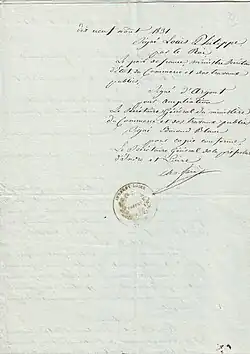 neuf août 1831
Signé Louis Philippe
par le Roi
Le pair de france, ministre
d'état du Commerce et des travaux
publics,
Signé d'Argout
pour ampliation
Le Secrétaire Général du ministère
du Commerce et des travaux publics
Signé Edmond Blanc
pour copie conforme
Le Secrétaire Général de la préfecture
d'Indre et Loire